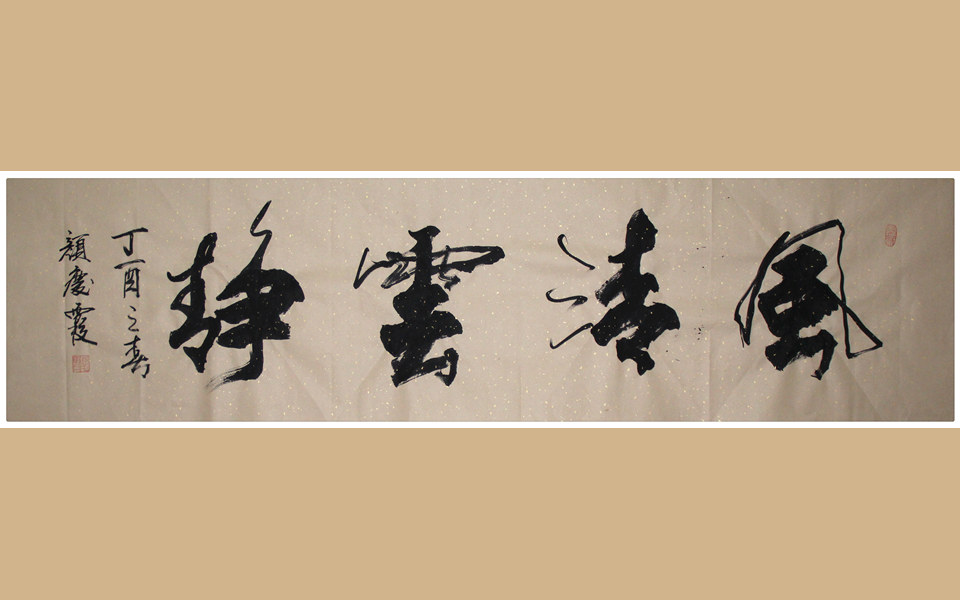 風清雲靜
丁酉之春
顏慶霞